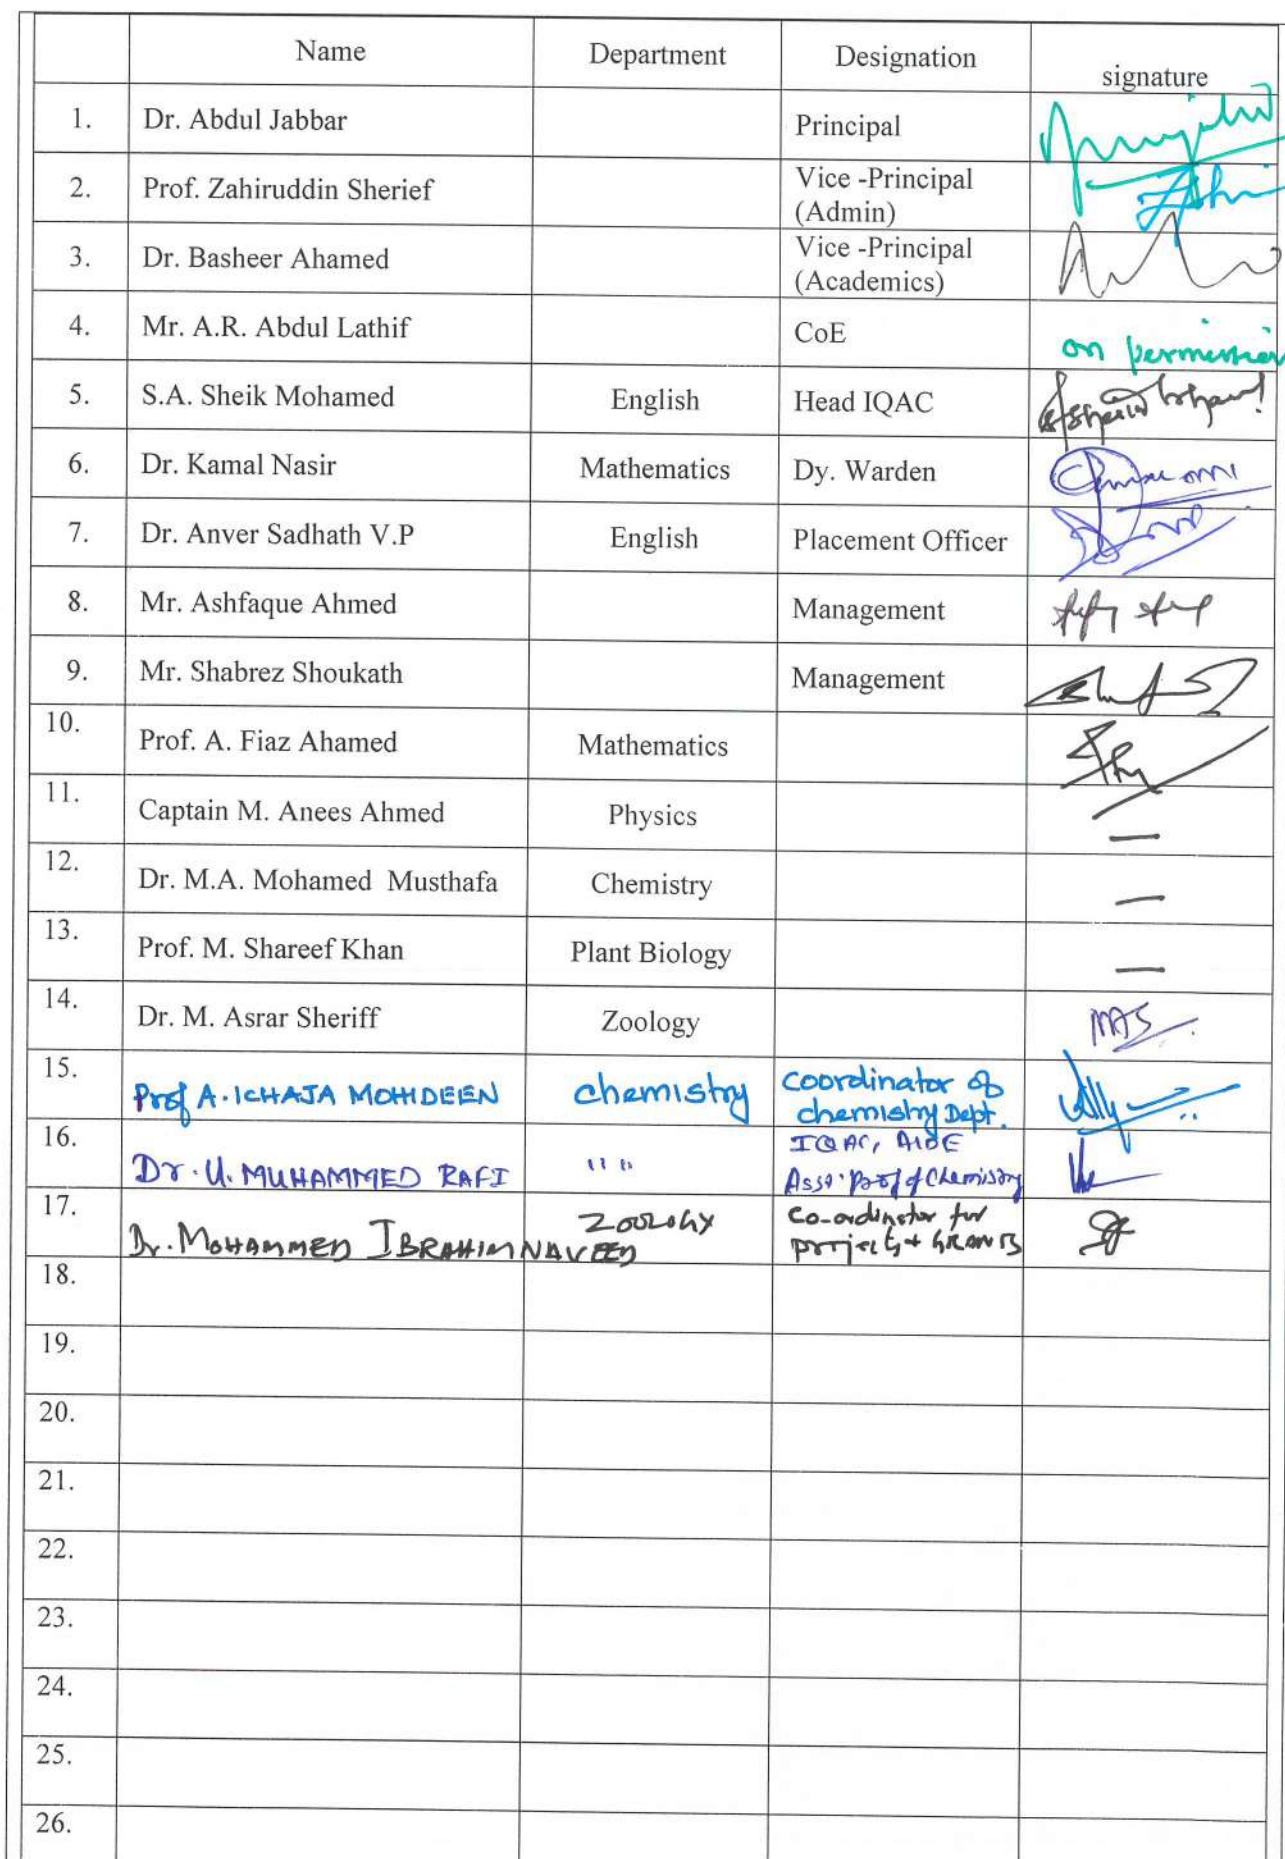 Name Department Designation signature
1. Dr. Abdul Jabbar Principal
2. Prof. Zahiruddin Sherief Vice -Principal
(Admin)
3. Dr. Basheer Ahamed Vice -Principal
(Academics)
4. Mr. A.R. Abdul Lathif CoE on permission
5. S.A. Sheik Mohamed English Head IQAC
6. Dr. Kamal Nasir Mathematics Dy. Warden
7. Dr. Anver Sadhath V.P English Placement Officer
8. Mr. Ashfaque Ahmed Management
9. Mr. Shabrez Shoukath Management
10. Prof. A. Fiaz Ahamed Mathematics
11. Captain M. Anees Ahmed Physics —
12. Dr. M.A. Mohamed Musthafa Chemistry —
13. Prof. M. Shareef Khan Plant Biology —
14. Dr. M. Asrar Sheriff Zoology MAS
15. Prof A. ICHAJA MOHIDEEN chemistry coordinator of
chemistry Dept.
16. Dr. U. MUHAMMED RAFI " " IQAC, AIDE
Asso. Prof of Chemistry
17. Dr. MOHAMMED IBRAHIM NAVEED ZOOLOGY Co-ordinator for
projects + GRANTS
18.
19.
20.
21.
22.
23.
24.
25.
26.